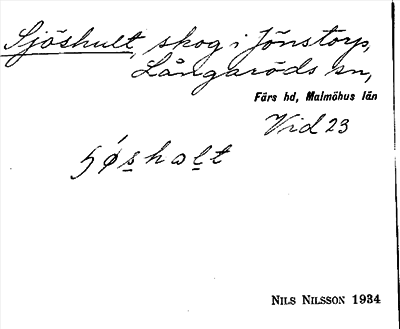 Sjöshult, skog i Jönstorp,
Långaröds sn,
Färs hd, Malmöhus län
Vid 23
NILS NILSSON 1934